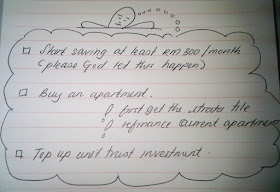 Start saving at least RM 300/month
(please God let this happen)
Buy an apartment.
first get the strata title
refinance current apartment
Top up unit trust investment.